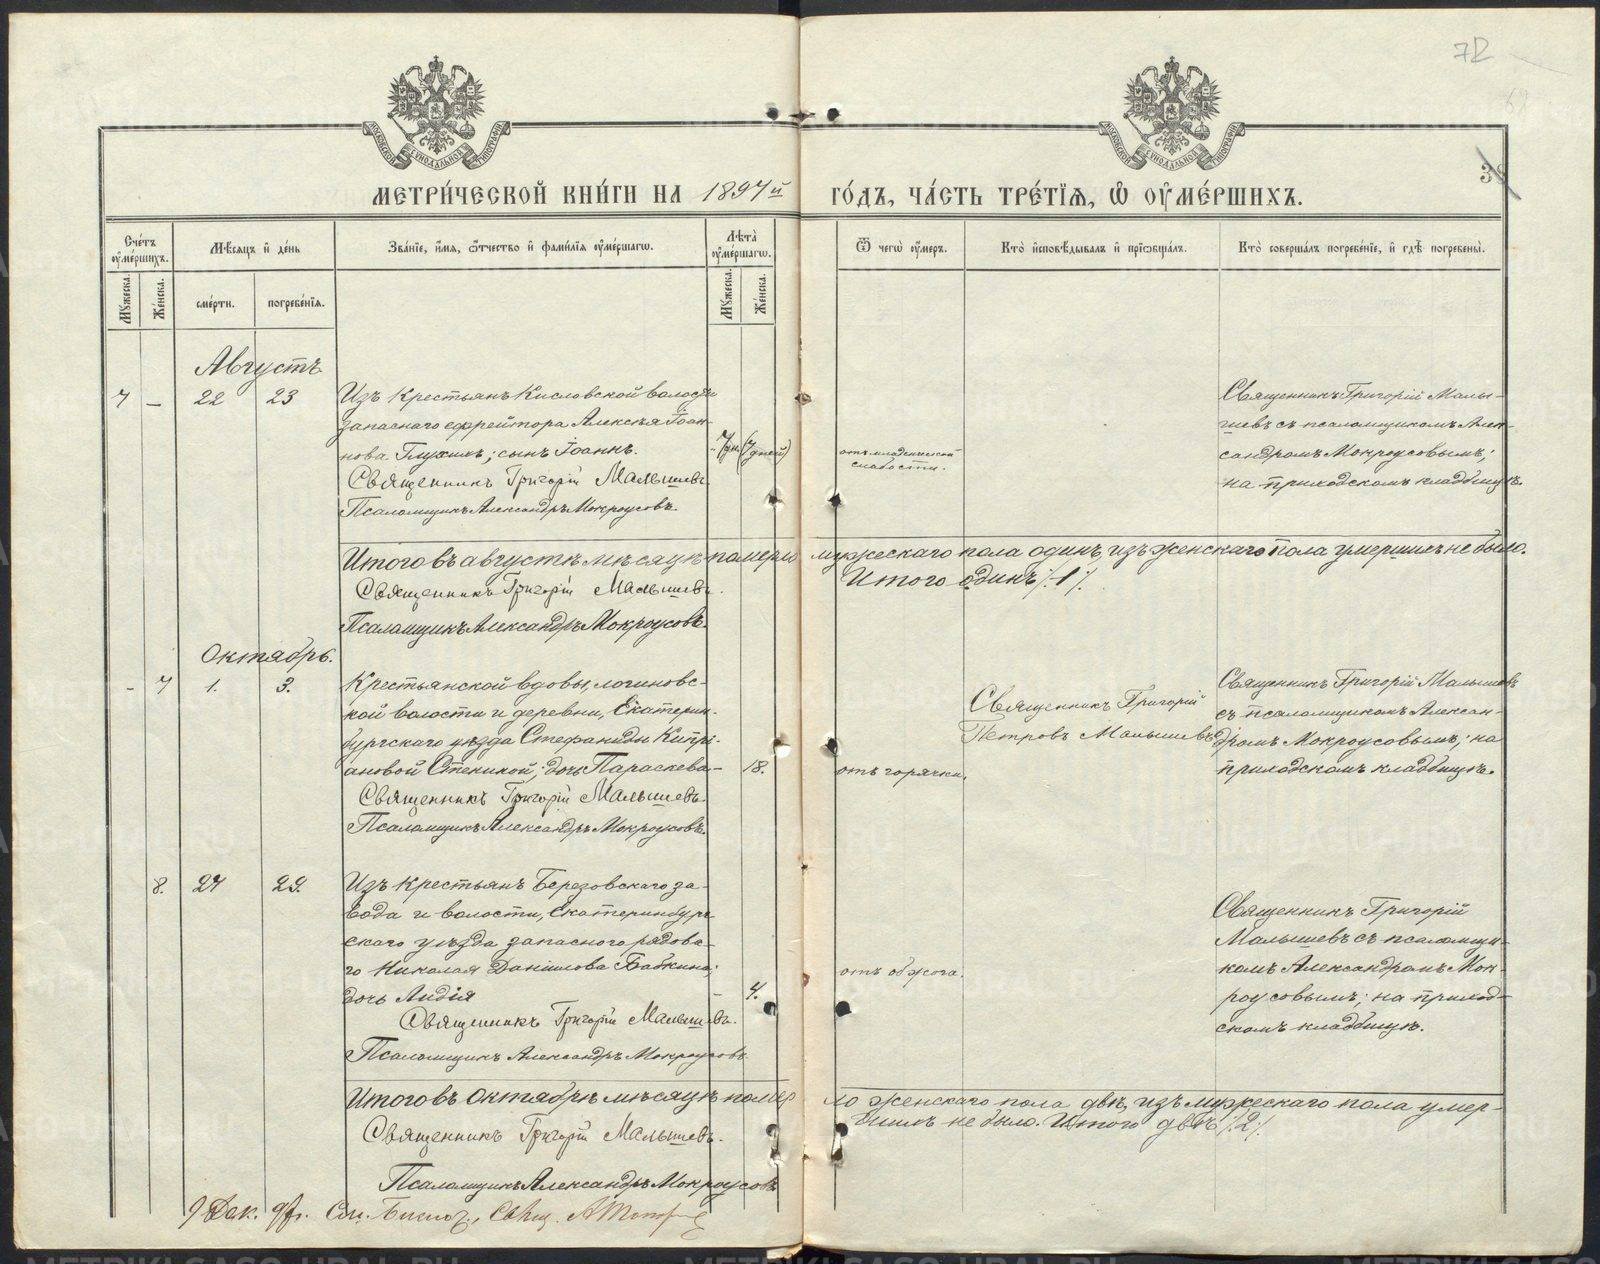 72
МЕТРИ́ЧЕСКОЙ КНИ́ГИ НА 1897й ГО́ДЪ, ЧА́СТЬ ТРЕ́ТІѦ, Ѡ ОУ҆МЕ́РШИХЪ.
Сче́тъ оу҆ме́ршихъ.
Мѣ́сѧцъ и҆ де́нь
Зва́нїе, и҆́мѧ, ѻ҆́тчество и҆ фами́лїѧ оу҆ме́ршагѡ.
Лѣ́та оу҆ме́ршагѡ.
Ѿ чегѡ̀ оу҆́меръ.
Кто̀ и҆сповѣ́дывалъ и҆ прїѡбща́лъ.
Кто̀ соверша́лъ погребе́нїе, и҆ гдѣ̀ погребены̀.
Мꙋ́жеска.
Же́нска.
сме́рти.
погребе́нїѧ.
Мꙋ́жеска.
Же́нска.
Августъ
7 – 22 23 Изъ крестьянъ Кисловской волости
запаснаго ефрейтора Алексѣя Іоан-
нова Глухихъ; сынъ Іоаннъ. 7дн. (7 дней)
Священникъ Григорій Малышевъ.
Псаломщикъ Александръ Мокроусовъ.
отъ младенческой
слабости.
Священникъ Григорій Малы-
шевъ съ псаломщикомъ Алек-
сандромъ Мокроусовымъ;
на приходскомъ кладбищѣ.
Итого въ августѣ мѣсяцѣ померло мужескаго пола одинъ, изъ женскаго пола умершихъ не было.
Итого одинъ /.1/.
Священникъ Григорій Малышевъ.
Псаломщикъ Александръ Мокроусовъ.
Октябрь.
- 7 1. 3. Крестьянской вдовы, логиновс-
кой волости и деревни, Екатерин-
бургскаго уѣзда Стефаниды Кипрі-
ановой; дочь Параскева- 18.
Священникъ Григорій Малышевъ.
Псаломщикъ Александръ Мокроусовъ.
отъ горячки.
Священникъ Григорій
Петровъ Малышевъ
Священникъ Григорій Малышевъ
съ псаломщикомъ Алексан-
дромъ Мокроусовымъ; на
приходскомъ кладбищѣ.
8. 27 29. Изъ крестьянъ Березовскаго за-
вода и волости, Екатеринбург-
скаго уѣзда запаснаго рядова-
го Николая Даніилова Бабкина;
дочь Лидія - 4.
Священникъ Григорій Малышевъ.
Псаломщикъ Александръ Мокроусовъ
отъ обжога.
Священникъ Григорій
Малышевъ съ псаломщи-
комъ Александромъ Мок-
роусовымъ; на приход-
скомъ кладбищѣ.
Итого въ Октябрѣ мѣсяцѣ померло женскаго пола двѣ, изъ мужескаго пола умер-
шихъ не было. Итого двѣ /.2/.
Священникъ Григорій Малышевъ.
Псаломщикъ Александръ Мокроусовъ
9 Дек. 97г.